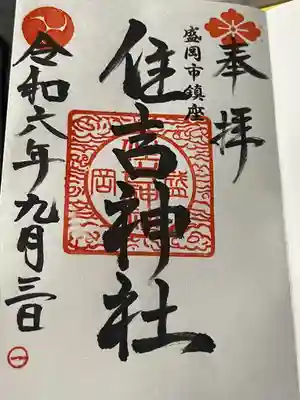 奉拝
盛岡市鎮座
住吉神社
令和六年九月三日